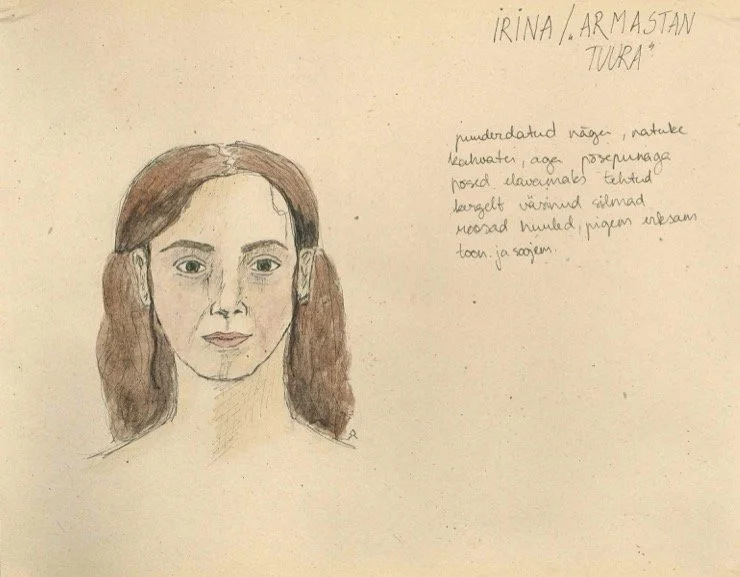 IRINA / „ARMASTAN
TUURA"
puuderdatud nägu, natuke
kahvatu, aga põsepunaga
põsed elavamaks tehtud
kergelt väsinud silmad
roosad huuled, pigem erksam
toon ja soojem.